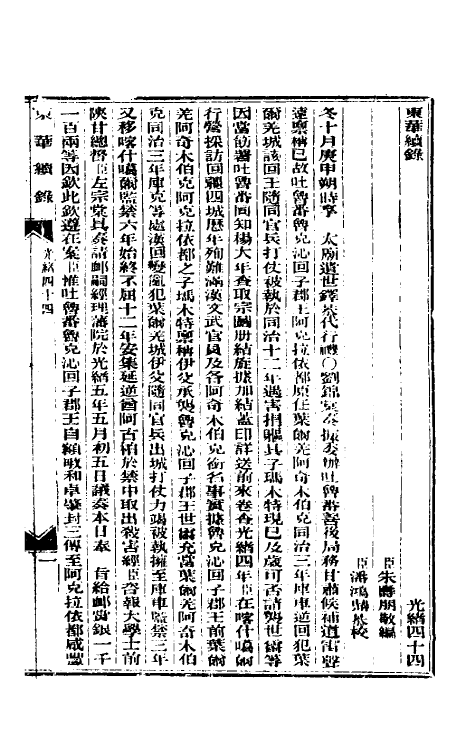 東華續錄
光緒四十四
臣朱壽朋敬編
臣潘鴻鼎恭校
冬十月庚申朔時享 太廟遣世鐸恭代行禮○劉錦棠奏據委辦吐魯番善後局務甘肅候補道雷聲
遠稟稱已故吐魯番魯克沁回子郡王阿克拉依都原任葉爾羌阿奇木伯克同治三年庫車逆回犯葉
爾羌城該回王隨同官兵打仗被執於同治十二年遇害捐軀其子瑪木特現已及歲可否請襲世爵等
因當飭署吐魯番同知楊大年查取宗圖册結旋據加結蓋印詳送前來卷查光緒四年臣在喀什噶爾
行營採訪回疆四城歷年殉難滿漢文武官員及各阿奇木伯克銜名事實據魯克沁回子郡王前葉爾
羌阿奇木伯克阿克拉依都之子瑪木特稟稱伊父承襲魯克沁回子郡王世爵充當葉爾羌阿奇木伯
克同治三年庫克等處漢回變亂犯葉爾羌城伊父隨同官兵出城打仗力竭被執擁至庫車監禁三年
又移喀什噶爾監禁六年始終不屈十二年安集延逆酋阿古柏於禁中取出殺害經臣咨報大學士前
陝甘總督臣左宗棠具奏請卹嗣經理藩院於光緒五年五月初五日議奏本日奉 旨給卹賞銀一千
一百兩等因欽此欽遵在案臣惟吐魯番魯克沁回子郡王自額敏和卓肇封三傳至阿克拉依都咸豐
東華續錄
光緒四十四
一